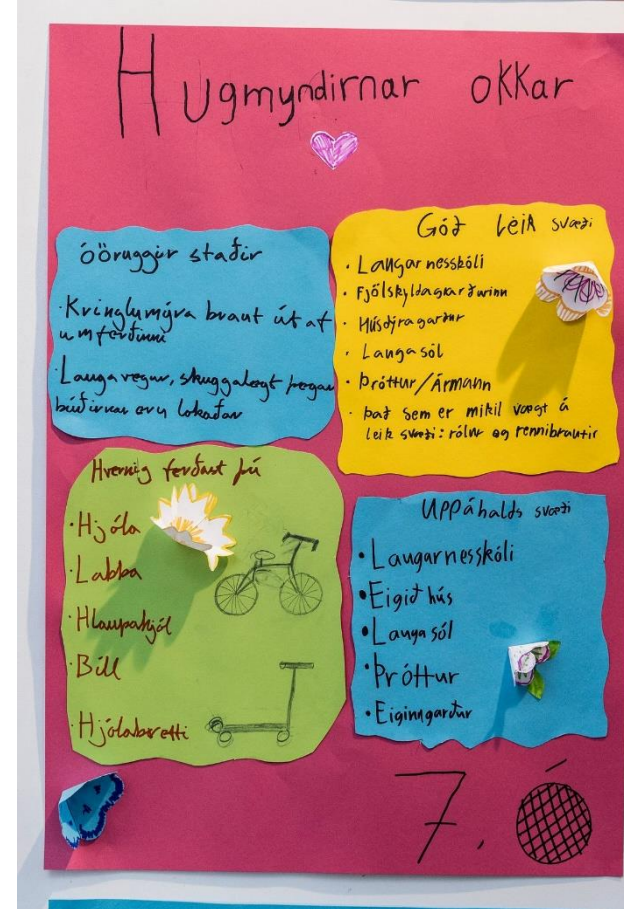 Hugmyndirnar okkar
óöruggir staðir
· Kringlumýra braut út af
umferðinni
· Laugavegur, skuggalegt þegar
búðirnar eru lokaðar
Góð leik svæði
· Laugarnesskóli
· Fjölskyldagarðurinn
· Húsdýragarður
· Laugasól
· Þróttur/Ármann
· það sem er mikil vægt á
leik svæði: rólur og rennibrautir
Hvernig ferðast þú
· Hjóla
· Labba
· Hlaupahjól
· Bíll
· Hjólabretti
Uppáhalds svæði
· Laugarnesskóli
· Eigið hús
· Laugasól
· Þróttur
· Eiginngarður
7. Ó